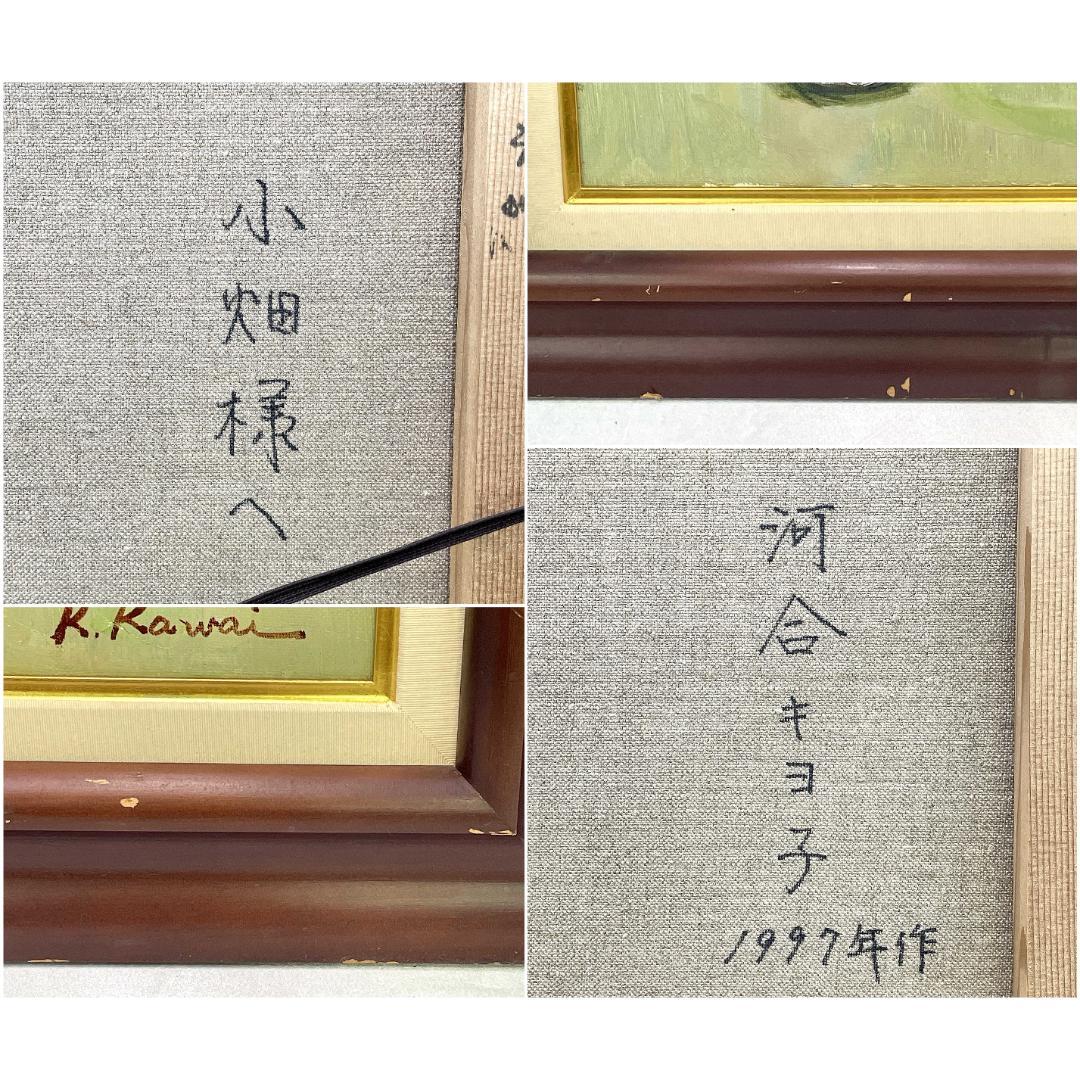 小畑様へ
K. Kawai
河合キヨ子
1997年作